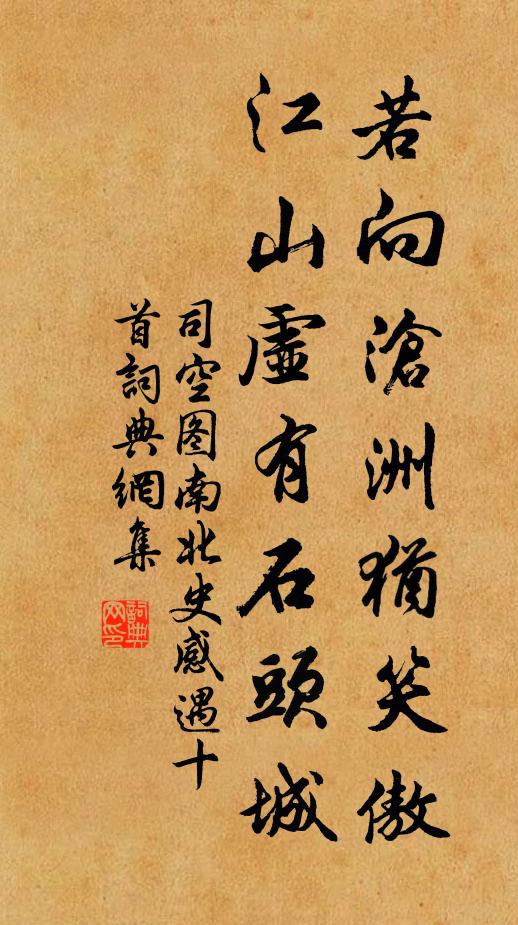 若向滄洲猶笑傲
江山虛有石頭城
司空图南北史感遇十
首詞典網集
詞典
网印